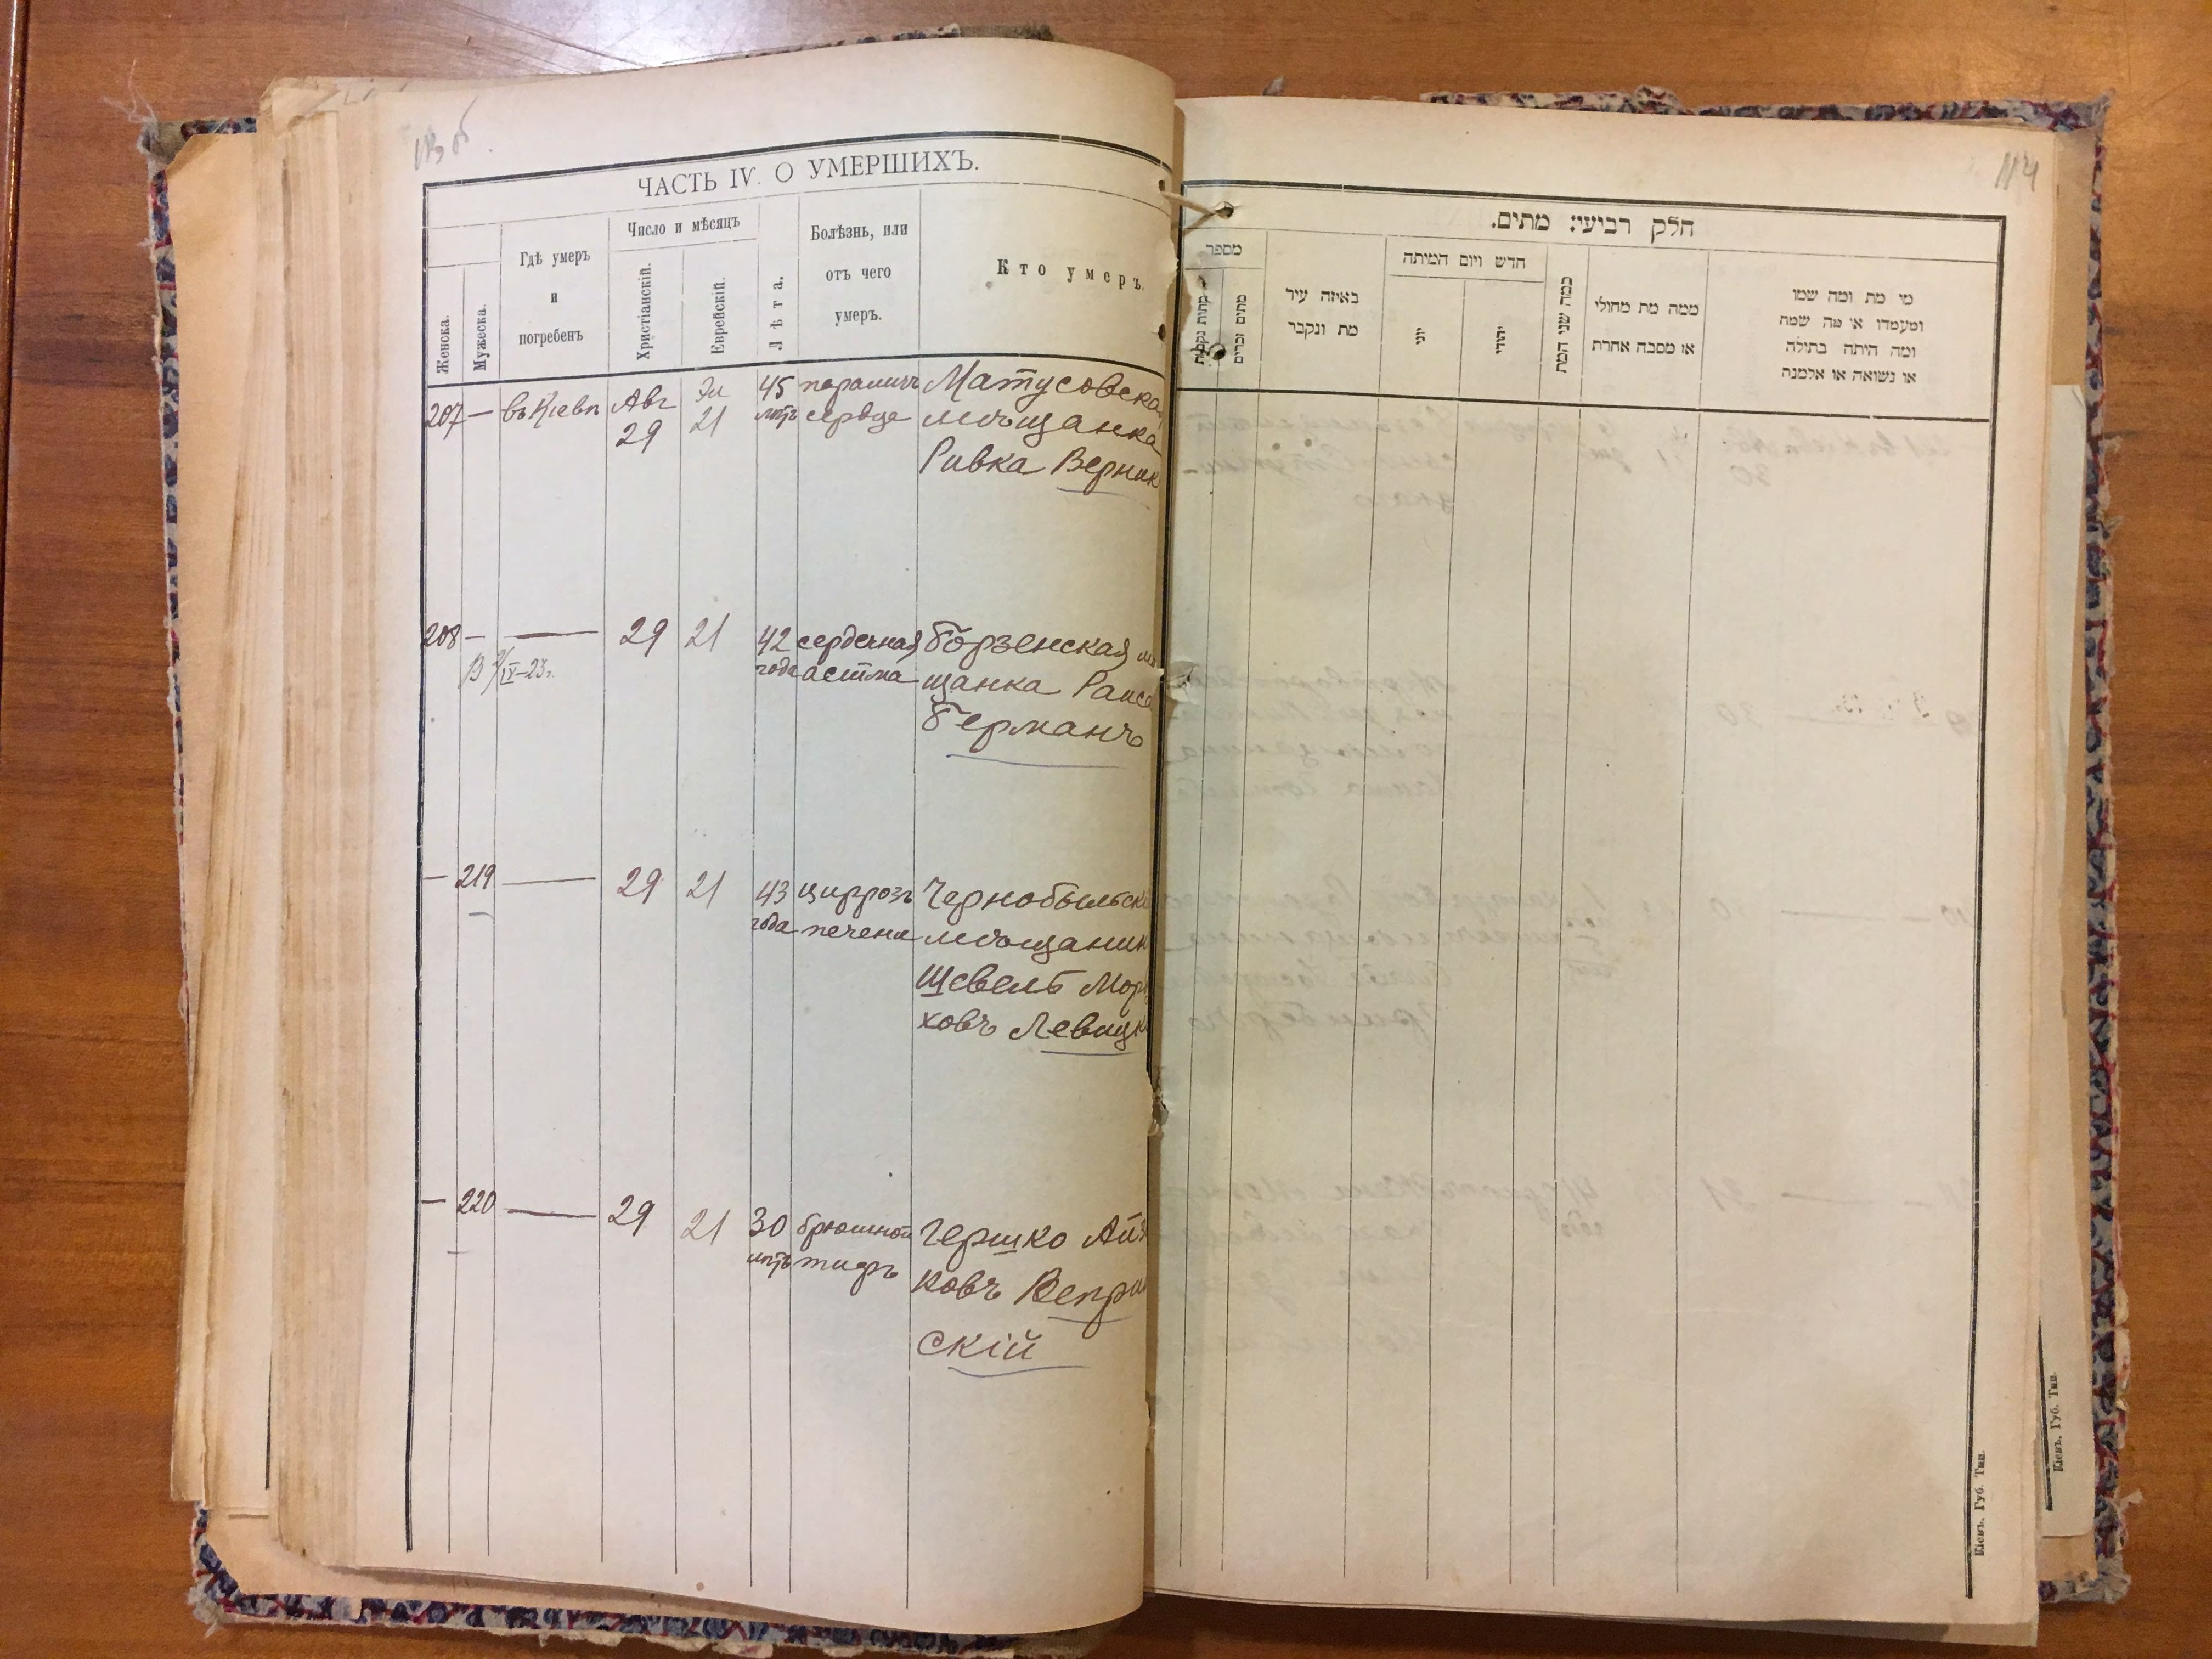 ЧАСТЬ IV. О УМЕРШИХЪ.
Женска.
Мужеска.
Гдѣ умеръ
и
погребенъ
Число и мѣсяцъ
Христіанскій.
Еврейскій.
Лѣта.
Болѣзнь, или
отъ чего
умеръ.
Кто умеръ.
207 — въ Кіевѣ Авг 29 Эл 21 45 лѣтъ параличъ сердца
Матусовска
мѣщанка
Ривка Верник
208 — — 29 21 42 года сердечная астма
IV-23г.
Борзенская мѣ
щанка Раиса
Германъ
— 219 — 29 21 43 года циррозъ печени
Чернобыльск
мѣщанин
Шевель Мор
ховъ Левицк
— 220 — 29 21 30 лѣтъ брюшной тифъ
Гершко Айз
ковъ Вепри
скій
114
חלק רביעי: מתים.
מספר
מתות נקבות
מתים זכרים
באיזה עיר
מת ונקבר
חדש ויום המיתה
יוני
יהודי
כמה שני המת
ממה מת מחולי
או מסבה אחרת
מי מת ומה שמו
ומעמדו או מה שמה
ומה היתה בתולה
או נשואה או אלמנה
Кіевъ, Губ. Тип.
Кіевъ, Губ. Тип.